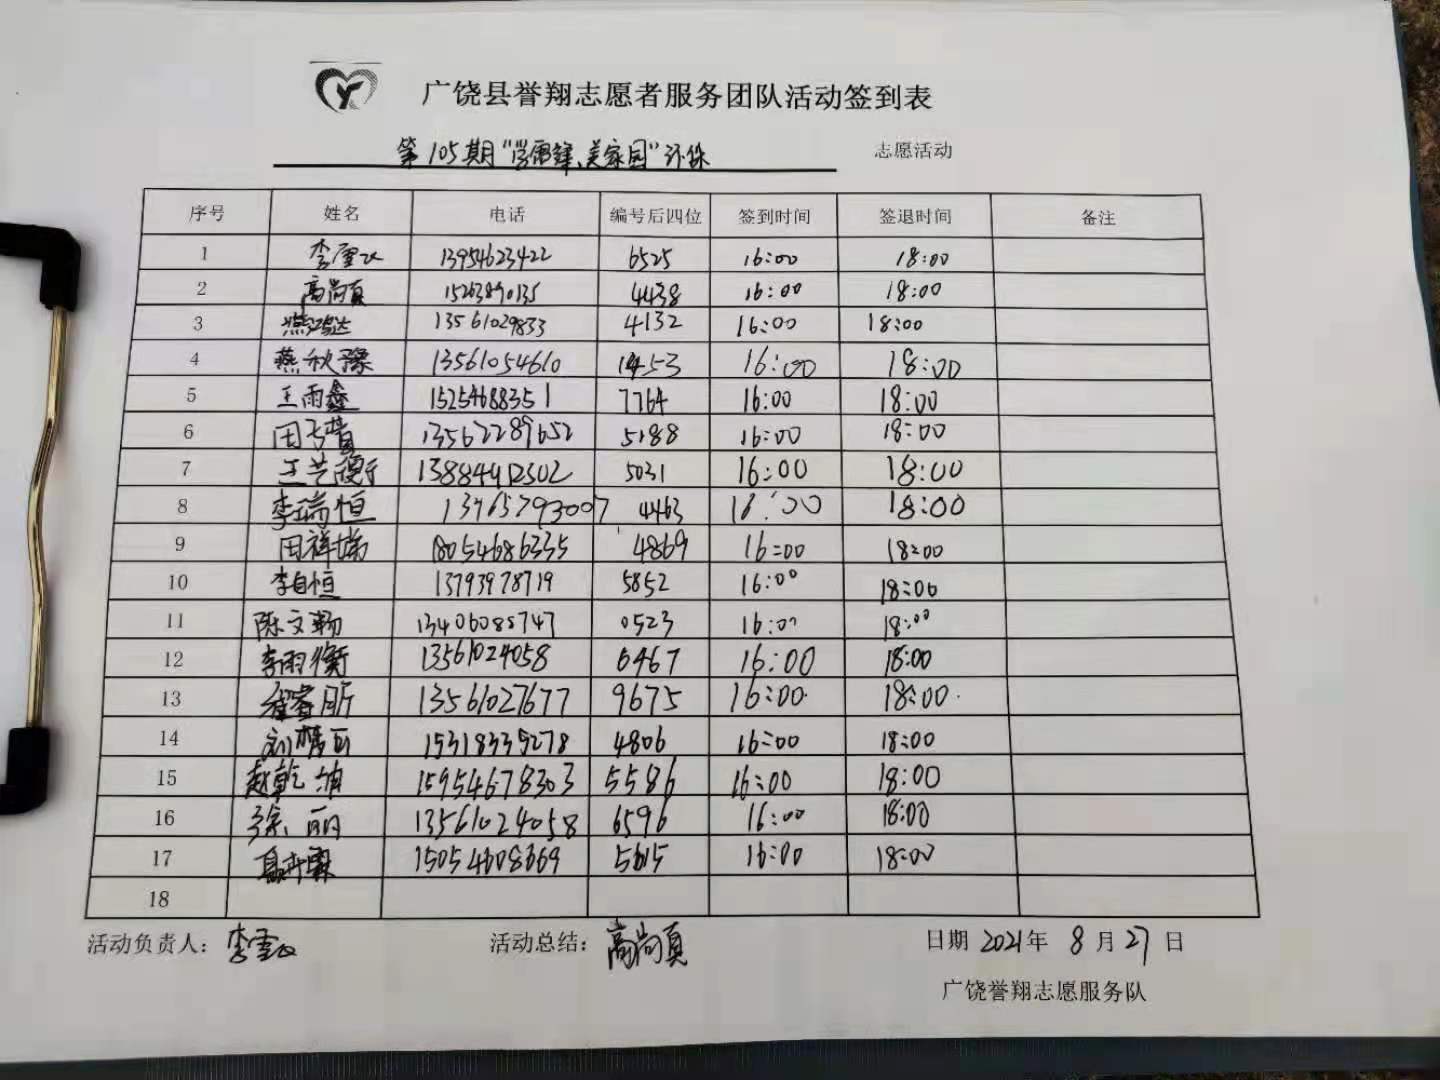 广饶县誉翔志愿者服务团队活动签到表
第105期“学雷锋、美家园”环保 志愿活动
序号 姓名 电话 编号后四位 签到时间 签退时间 备注
1 李雪 13954623422 6525 16:00 18:00
2 高尚真 15263890135 4438 16:00 18:00
3 燕鸿达 13561029833 4132 16:00 18:00
4 燕秋豫 13561054610 1453 16:00 18:00
5 王雨鑫 15254688351 7764 16:00 18:00
6 田 13562289652 5188 16:00 18:00
7 王艺 13884912502 5031 16:00 18:00
8 李瑞恒 13465793007 4463 16:00 18:00
9 田祥瑞 18054686335 4869 16:00 18:00
10 李自恒 13793978719 5852 16:00 18:00
11 陈文 13406085747 0523 16:00 18:00
12 李雨衡 13561024058 6467 16:00 18:00
13 13561027677 9675 16:00 18:00
14 刘 15318335278 4806 16:00 18:00
15 赵乾 15954678303 5586 16:00 18:00
16 徐丽 13561024058 6596 16:00 18:00
17 15054608669 5615 16:00 18:00
18
活动负责人: 李雪 活动总结: 高尚真 日期 2021年 8月27日
广饶誉翔志愿服务队